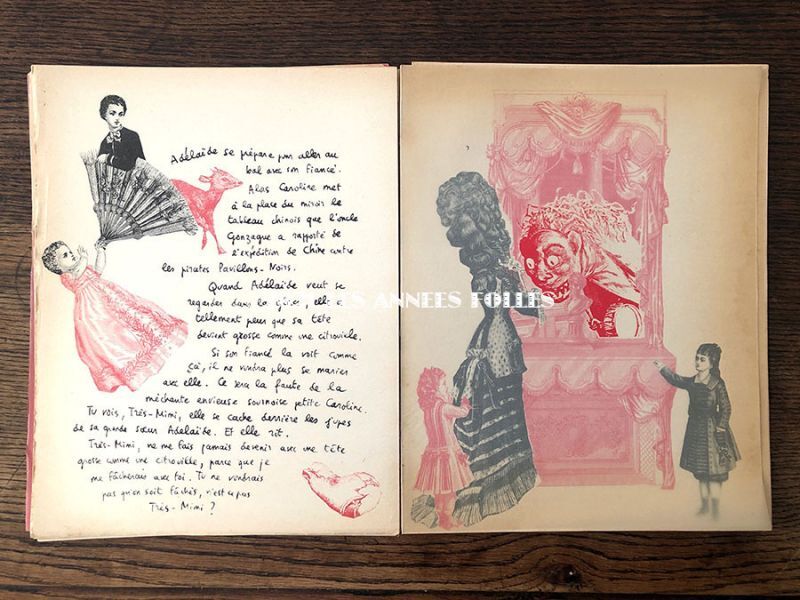 Adélaïde se prépare pour aller au
bal avec son fiancé.
Alors Caroline met
à la place du miroir le
tableau chinois que l'oncle
Gonzague a rapporté de
l'expédition de Chine contre
les pirates Pavillons-Noirs.
Quand Adélaïde veut se
regarder dans la glace, elle a
tellement peur que sa tête
devient grosse comme une citrouille.
Si son fiancé la voit comme
ça, il ne voudra plus se marier
avec elle. Ce sera la faute de la
méchante envieuse sournoise petite Caroline.
Tu vois, Très-Mimi, elle se cache derrière les jupes
de sa grande sœur Adélaïde. Et elle rit.
Très-Mimi, ne me fais jamais devenir avec une tête
grosse comme une citrouille, parce que je
me fâcherais avec toi. Tu ne voudrais
pas qu'on soit fâchés, n'est-ce pas
Très-Mimi ?
LES ANNEES FOLLES